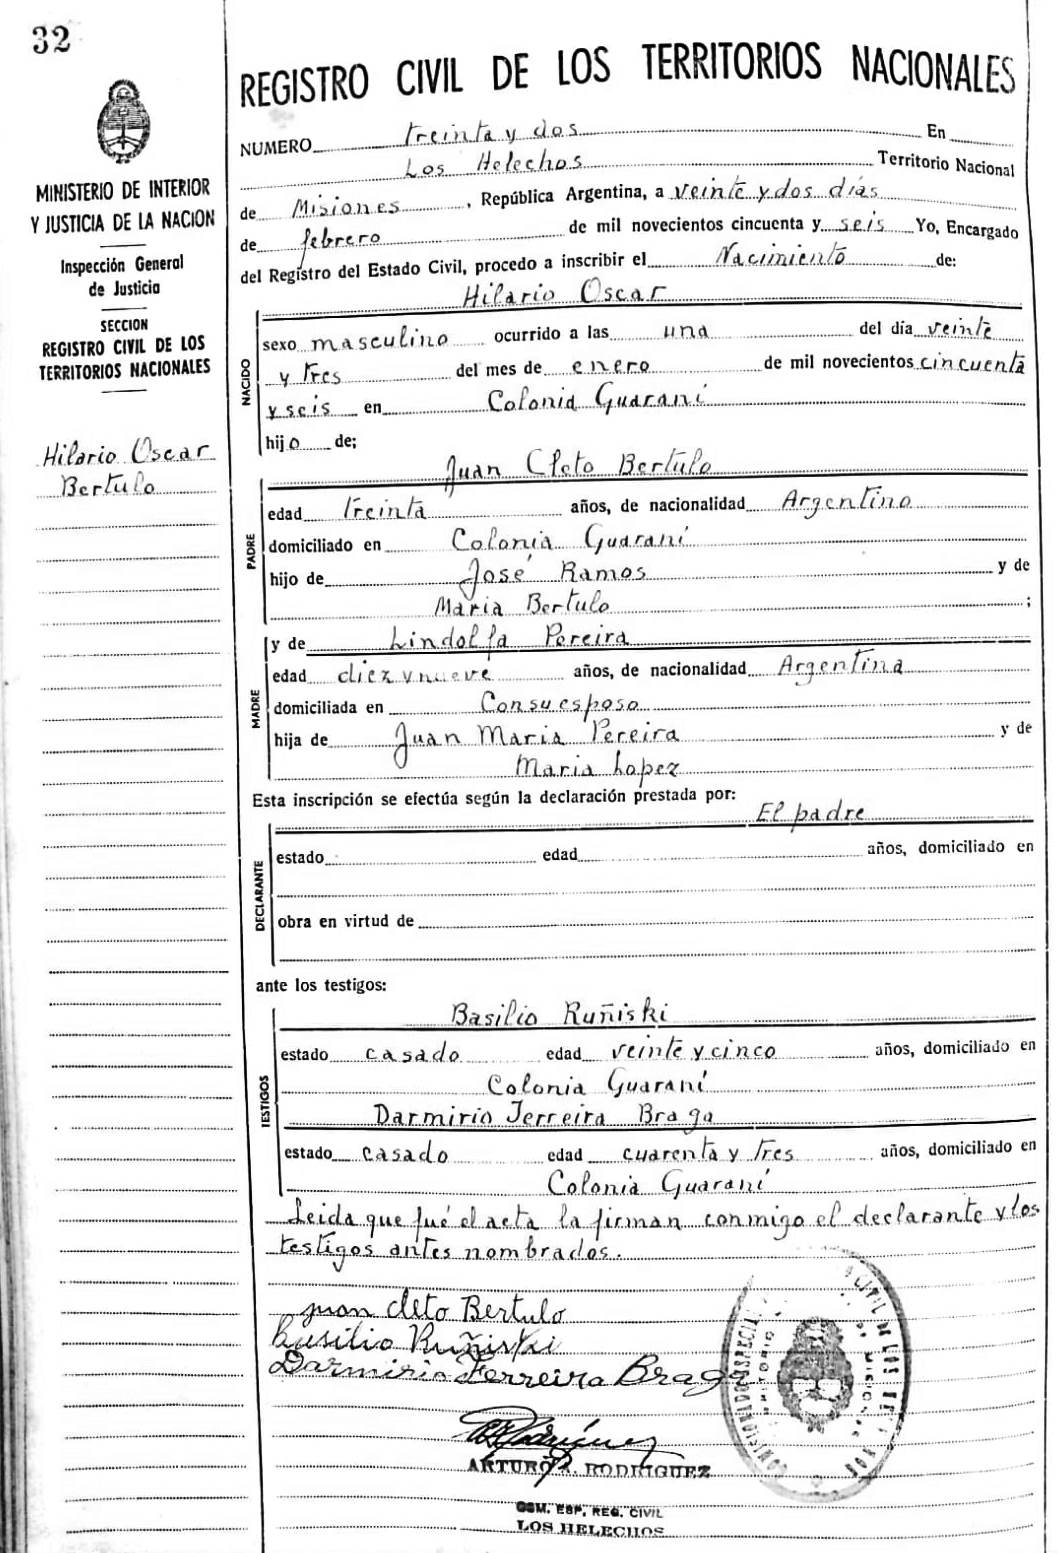 32
MINISTERIO DE INTERIOR
Y JUSTICIA DE LA NACION
Inspección General
de Justicia
SECCION
REGISTRO CIVIL DE LOS
TERRITORIOS NACIONALES
Hilario Oscar
Bertulo
REGISTRO CIVIL DE LOS TERRITORIOS NACIONALES
NUMERO treinta y dos En
Los Helechos Territorio Nacional
de Misiones, República Argentina, a veinte y dos días
de febrero de mil novecientos cincuenta y seis Yo, Encargado
del Registro del Estado Civil, procedo a inscribir el Nacimiento de:
Hilario Oscar
NACIDO
sexo masculino ocurrido a las una del día veinte
y tres del mes de enero de mil novecientos cincuenta
y seis en Colonia Guaraní
hijo de;
Juan Cleto Bertulo
PADRE
edad treinta años, de nacionalidad Argentino
domiciliado en Colonia Guaraní
hijo de José Ramos y de
Maria Bertulo ;
y de Lindolfa Pereira
MADRE
edad diez y nueve años, de nacionalidad Argentina
domiciliada en Con su esposo
hija de Juan Maria Pereira y de
Maria Lopez
Esta inscripción se efectúa según la declaración prestada por:
El padre
DECLARANTE
estado edad años, domiciliado en
obra en virtud de
ante los testigos:
Basilio Ruñiski
TESTIGOS
estado casado edad veinte y cinco años, domiciliado en
Colonia Guaraní
Darmirio Ferreira Braga
estado casado edad cuarenta y tres años, domiciliado en
Colonia Guaraní
Leida que fué el acta la firman conmigo el declarante y los
testigos antes nombrados.
juan cleto Bertulo
Basilio Ruñiski
Darmirio Ferreira Braga
ARTURO A. RODRIGUEZ
COM. ESP. REG. CIVIL
LOS HELECHOS